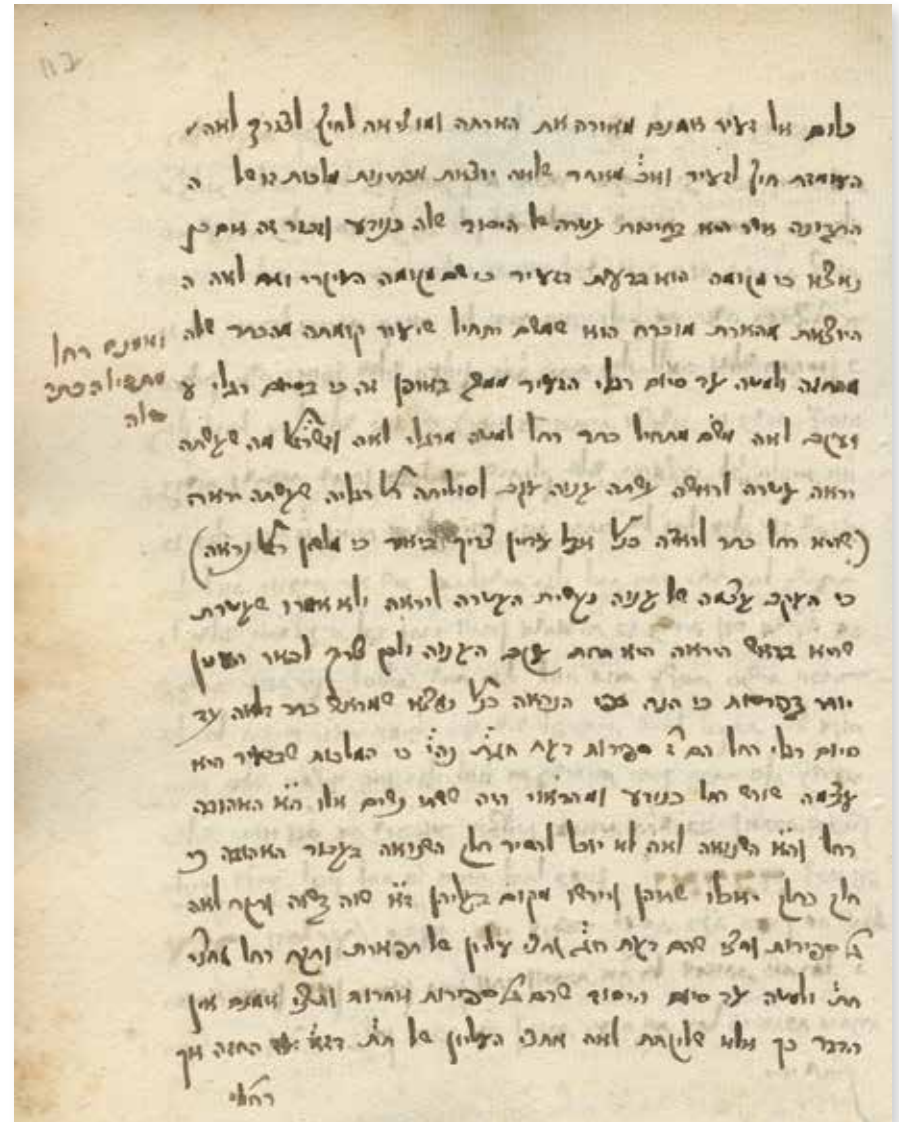 כלום אל זעיר אמנם מאורה את הארתה ומוציאה לחוץ לצורך לאה
העומדת חוץ לזעיר ואכ׳ מאחר שלאה יוצאת מבחינת מלכות של ה
התבונה אשר היא בחינת עטרה של היסוד שלה כנודע ובכר זה אם כן
נמצא כי מקומה הוא בדעת דזעיר כי שם מקומה העיקרי ואם לאה ה
היוצאת מהארת מוכרח הוא שמשם יתחיל שיעור קומתה מהכתר שלה
מתחיה ולמטה עד סיום רגלי הזעיר ממש באופן זה כי בסיום רגלי ע
ועקב לאה משם מתחיל כתר רחל למטה מרגלי לאה וז״ש רז״ל מה שעשתה
יראה עטרה לראשה עשתה ענוה עקב לסוליתה ר״ל רגליה שעשתה יראה
(שהיא רחל כתר לראשה כנ״ל אבל עדיין צריך ביאור כי מלשון רז״ל נראה)
כי העקב עצמה של ענוה נעשית העטרה ליראה ולא אמרו שעטרת
שהיא בראש היראה היא תחת עקב הענוה ולכן צריך לבאר הענין
יותר בפרטות כי הנה הנראה כנ״ל נמצא שמראש כתר דלאה עד
סיום רגלי רחל הם ז׳ ספירות דעת חג״ת נה״י כי המלכות שבזעיר היא
עצמה שורש רחל כנודע ומהראוי היה ששתי נשים אלו הא׳ האהובה
רחל והא׳ השנואה לאה לא יוכל להסיר חלק השנואה בעבור האהובה כי
חלק כחלק יאכלו שתיהן ויירשו מקום בעליהן ז״א שוה בשוה ותקח לאה
ג׳ ספירות וחצי שהם דעת חג׳ וחצי עליון של תפארת ותקח רחל מחצי
ת״ת ולמטה עד סיום היסוד שהם ג׳ ספירות אחרות וחצי אמנם אין
הדבר כך אלא שלוקחת לאה מחצי העליון של ת״ת דז״א עד החזה אך
רחל
ואמנם רחל
מתחיל הכתר
שלה